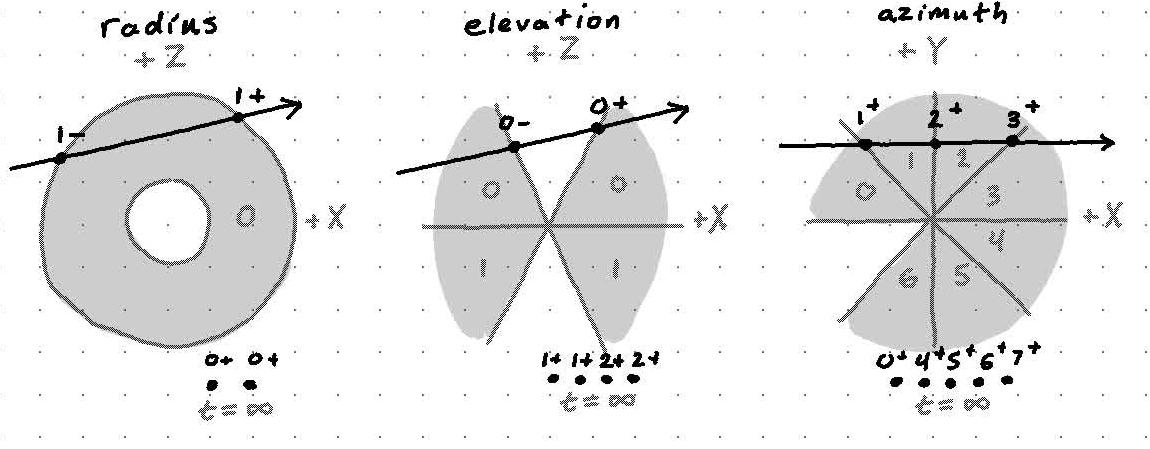 radius
+Z
1- 1+
0
+X
0+ 0+
t=∞
elevation
+Z
0- 0+
0 0
+X
1 1
1+ 1+ 2+ 2+
t=∞
azimuth
+Y
1+ 2+ 3+
1 2
0 3
+X
4
6 5
0+ 4+ 5+ 6+ 7+
t=∞